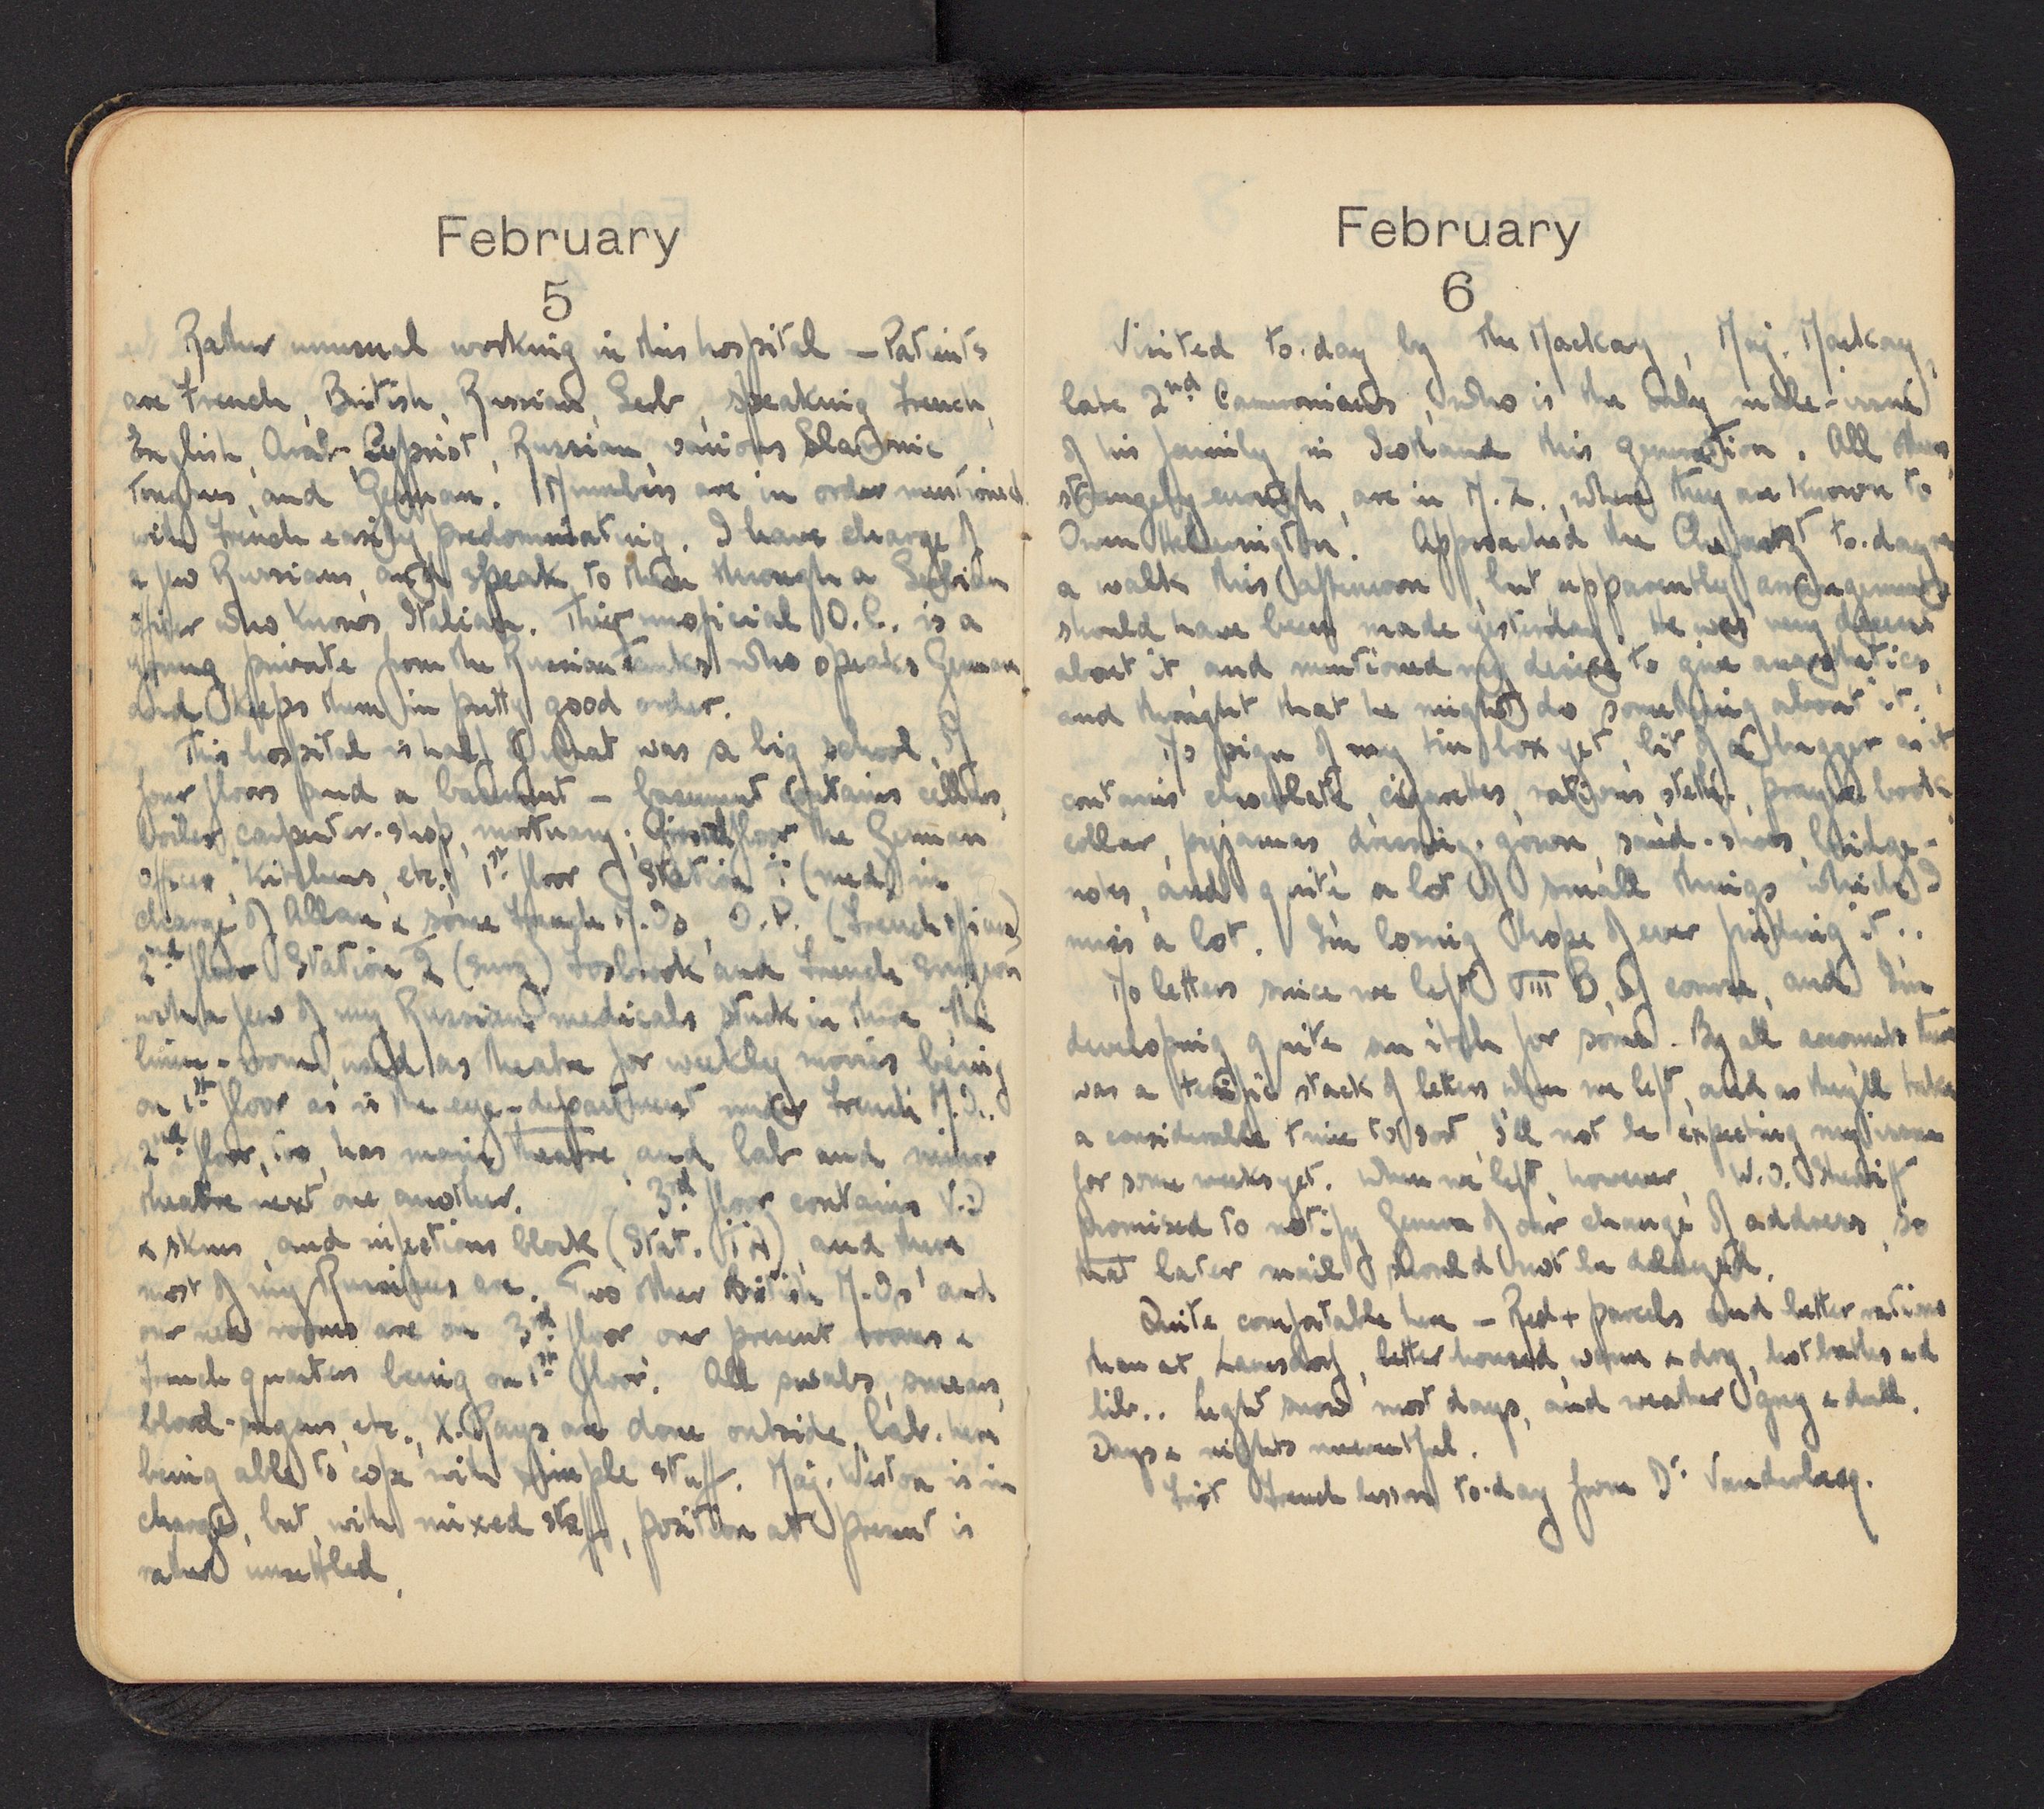 February
5
Rather unusual working in this hospital – Patients
are French, British, Russian, Serb, speaking French,
English, Arab, Cypriot, Russian, various Slavonic
Tongues, and German. Numbers are in order mentioned
with French easily predominating. I have charge of
a few Russians, and speak to them through a Serbian
officer who knows Italian. Their unofficial O.C. is a
young private from the Russian Tanks who speaks German
and keeps them in pretty good order.
This hospital is half of what was a big school, of
four floors and a basement – basement contains cellars,
boiler, carpenter-shop, mortuary; Ground floor the German
offices, kitchens, etc.; 1st floor Station 1 (med) in
charge of Allan & some French M.Os, O.P. (French officer)
2nd floor Station 2 (surg) and French surgeon
with a few of my Russian medicals stuck in there, the
linen-room, used as theatre for weekly movies being
on 1st floor as is the eye-department under French M.O..
2nd floor, too, has main theatre, and lab and minor
theatre next one another. 3rd floor contains V.D
& skins, and infectious block (Stat. ), and there
most of my Russians are. Two other British M.Os' and
our new rooms are on 3rd floor our present rooms &
French quarters being on 1st floor. All swabs, smears,
blood-ureas, etc., X-Rays are done outside, lab. here
being able to cope with simple stuff. Maj. Weston is in
charge, but, with mixed staff, position at present is
rather unsettled.
February
6
Visited to-day by the Mackay, Maj. Mackay,
late 2nd Cameronians, who is the only male-issue
of his family in Scotland this generation. All others,
strangely enough, are in N.Z., where they are known to
Owen Hetherington. Approached the Chefarzt to-day re
a walk this afternoon, but apparently arrangements
should have been made yesterday. He was very decent
about it, and mentioned my desire to give anaesthetics,
and thought that he might do something about it.
No sign of my tin box yet, bit of a bugger as it
contains chocolate, cigarettes, rations, steth., prayer book
collar, pyjamas, dressing-gown, sand-shoes, bridge-
notes, and quite a lot of small things which I
miss a lot. I'm losing hope of ever finding it..
No letters since we left VIII B, of course, and I'm
developing quite an itch for some. By all accounts there
was a terrific stack of letters when we left, and as they'll take
a considerable time to sort, I'll not be expecting any issue
for some weeks yet. When we left, however, W.O. Sheriff
promised to notify Geneva of our change of address, so
that later mail should not be delayed.
Quite comfortable here – Red + parcels and better rations
than at Lamsdorf, better housed, warm & dry, hot baths ad
lib.. Light snow most days, and weather grey & dull.
Days & nights uneventful.
First French lesson to-day from Dr.